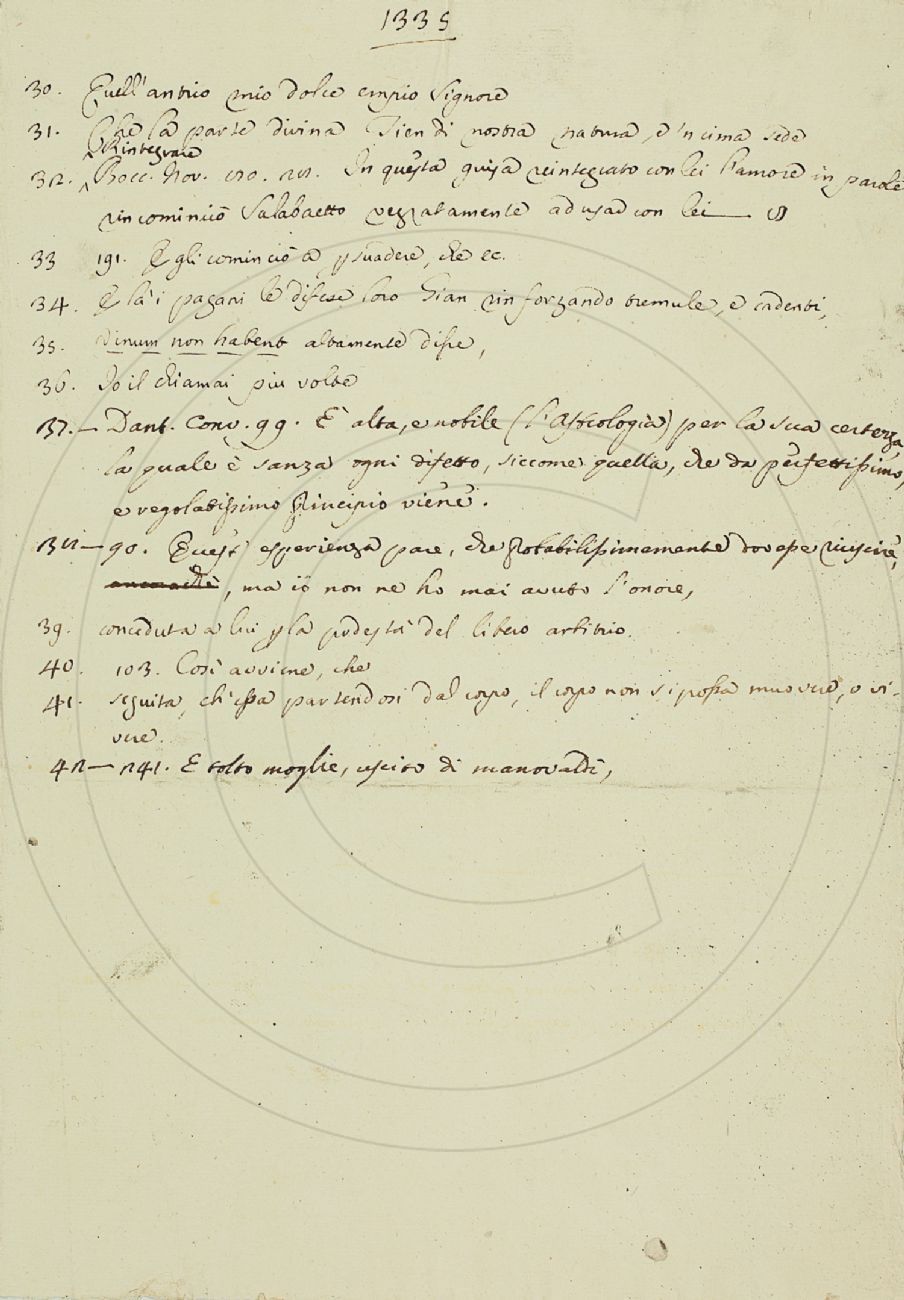 1335
30. Quell'antico mio dolce empio Signore
31. Che la parte divina Tien di nostra natura, e 'n cima sede
Rintegrare
32. Bocc. Nov. 80. 28. In questa guisa reintegrato con lei l'amore in parole
rincominciò Salabaetto vezzatamente ad usar con lei
33 191. E gli cominciò a psuadere, che ec.
34. E là i pagani le difese loro Gian rinforzando tremule, e cadenti,
35. Vinum non habent altamente disse,
36. Io il chiamai più volte
37.— Dant. Conv. 99. E' alta, e nobile (l'Astrologia) per la sua certezza,
la quale è sanza ogni difetto, siccome quella, che da perfettissimo,
e regolatissimo principio viene.
38— 90. Quest' esperienza pare, che probabilissimamente dovesse riuscire,
ancorachè, ma io non ne ho mai avuto l'onore,
39. conceduta a lui p la podestà del libero arbitrio.
40. 103. Così avviene, che
41. seguita, ch'essa partendosi dal corpo, il corpo non si possa muovere, o vi-
vere.
42— 241. E tolto moglie, uscito di manovaldi,